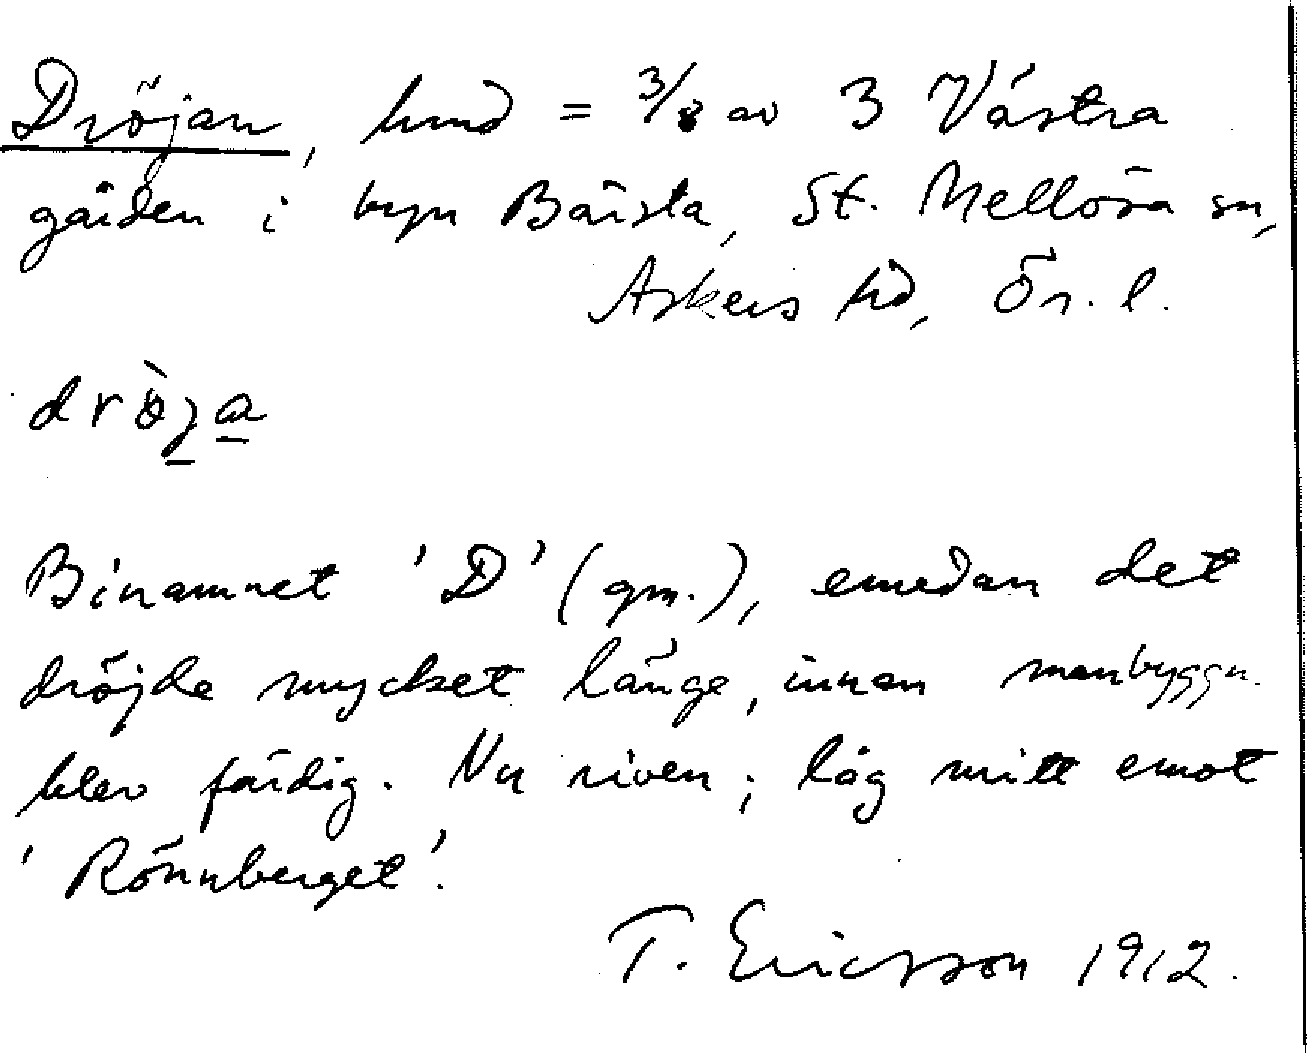 Dröjan, hmd = 3/8 av 3 Västra
gården i byn Bärsta, St. Mellösa sn,
Askers hd, Ör. l.
drö̀ȷa
Binamnet 'D' (gm.), emedan det
dröjde mycket länge, innan manbyggn.
blev färdig. Nu riven; låg mitt emot
'Rönnberget'.
T. Ericsson 1912.